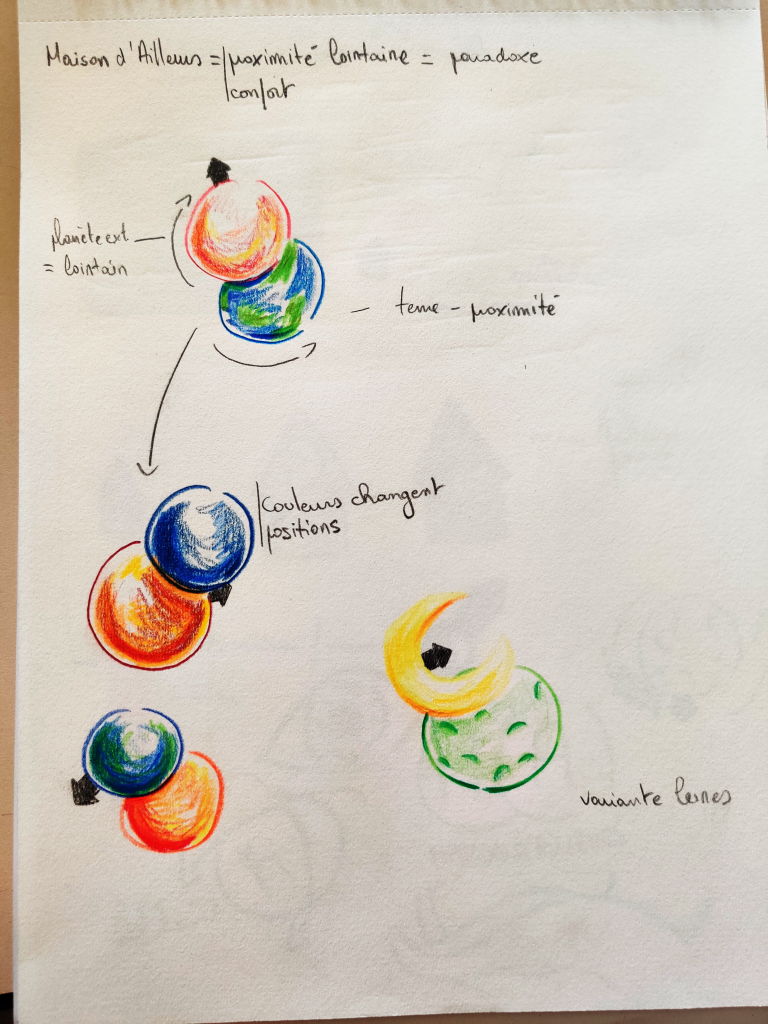 Maison d'Ailleurs = proximité lointaine = paradoxe
confort
planète ext
= lointain
terre - proximité
couleurs changent
positions
variante lunes